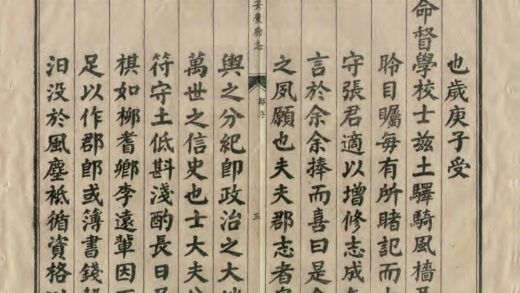 也歲庚子受
命督學校士兹土驛騎風檣
聆目矚每有所睹記而
守張君適以增修志成
言於余余捧而喜曰是
之夙願也夫夫郡志者
安慶府志
序
三
輿之分紀即政治之大
萬世之信史也士大夫
符守土低斟淺酌長日
棋如柳耆卿李遠輩因
足以作郡即或簿書錢
汨没於風塵袛循資格